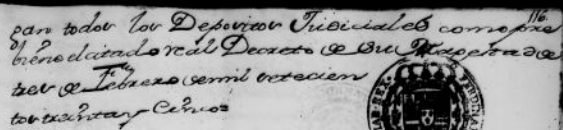 116.
gan todos los Depositos Judiciales como pre
biene el citado real Decreto de Su Magestad de
tres de Febrero de mil setecien
tos treinta y Cinco=